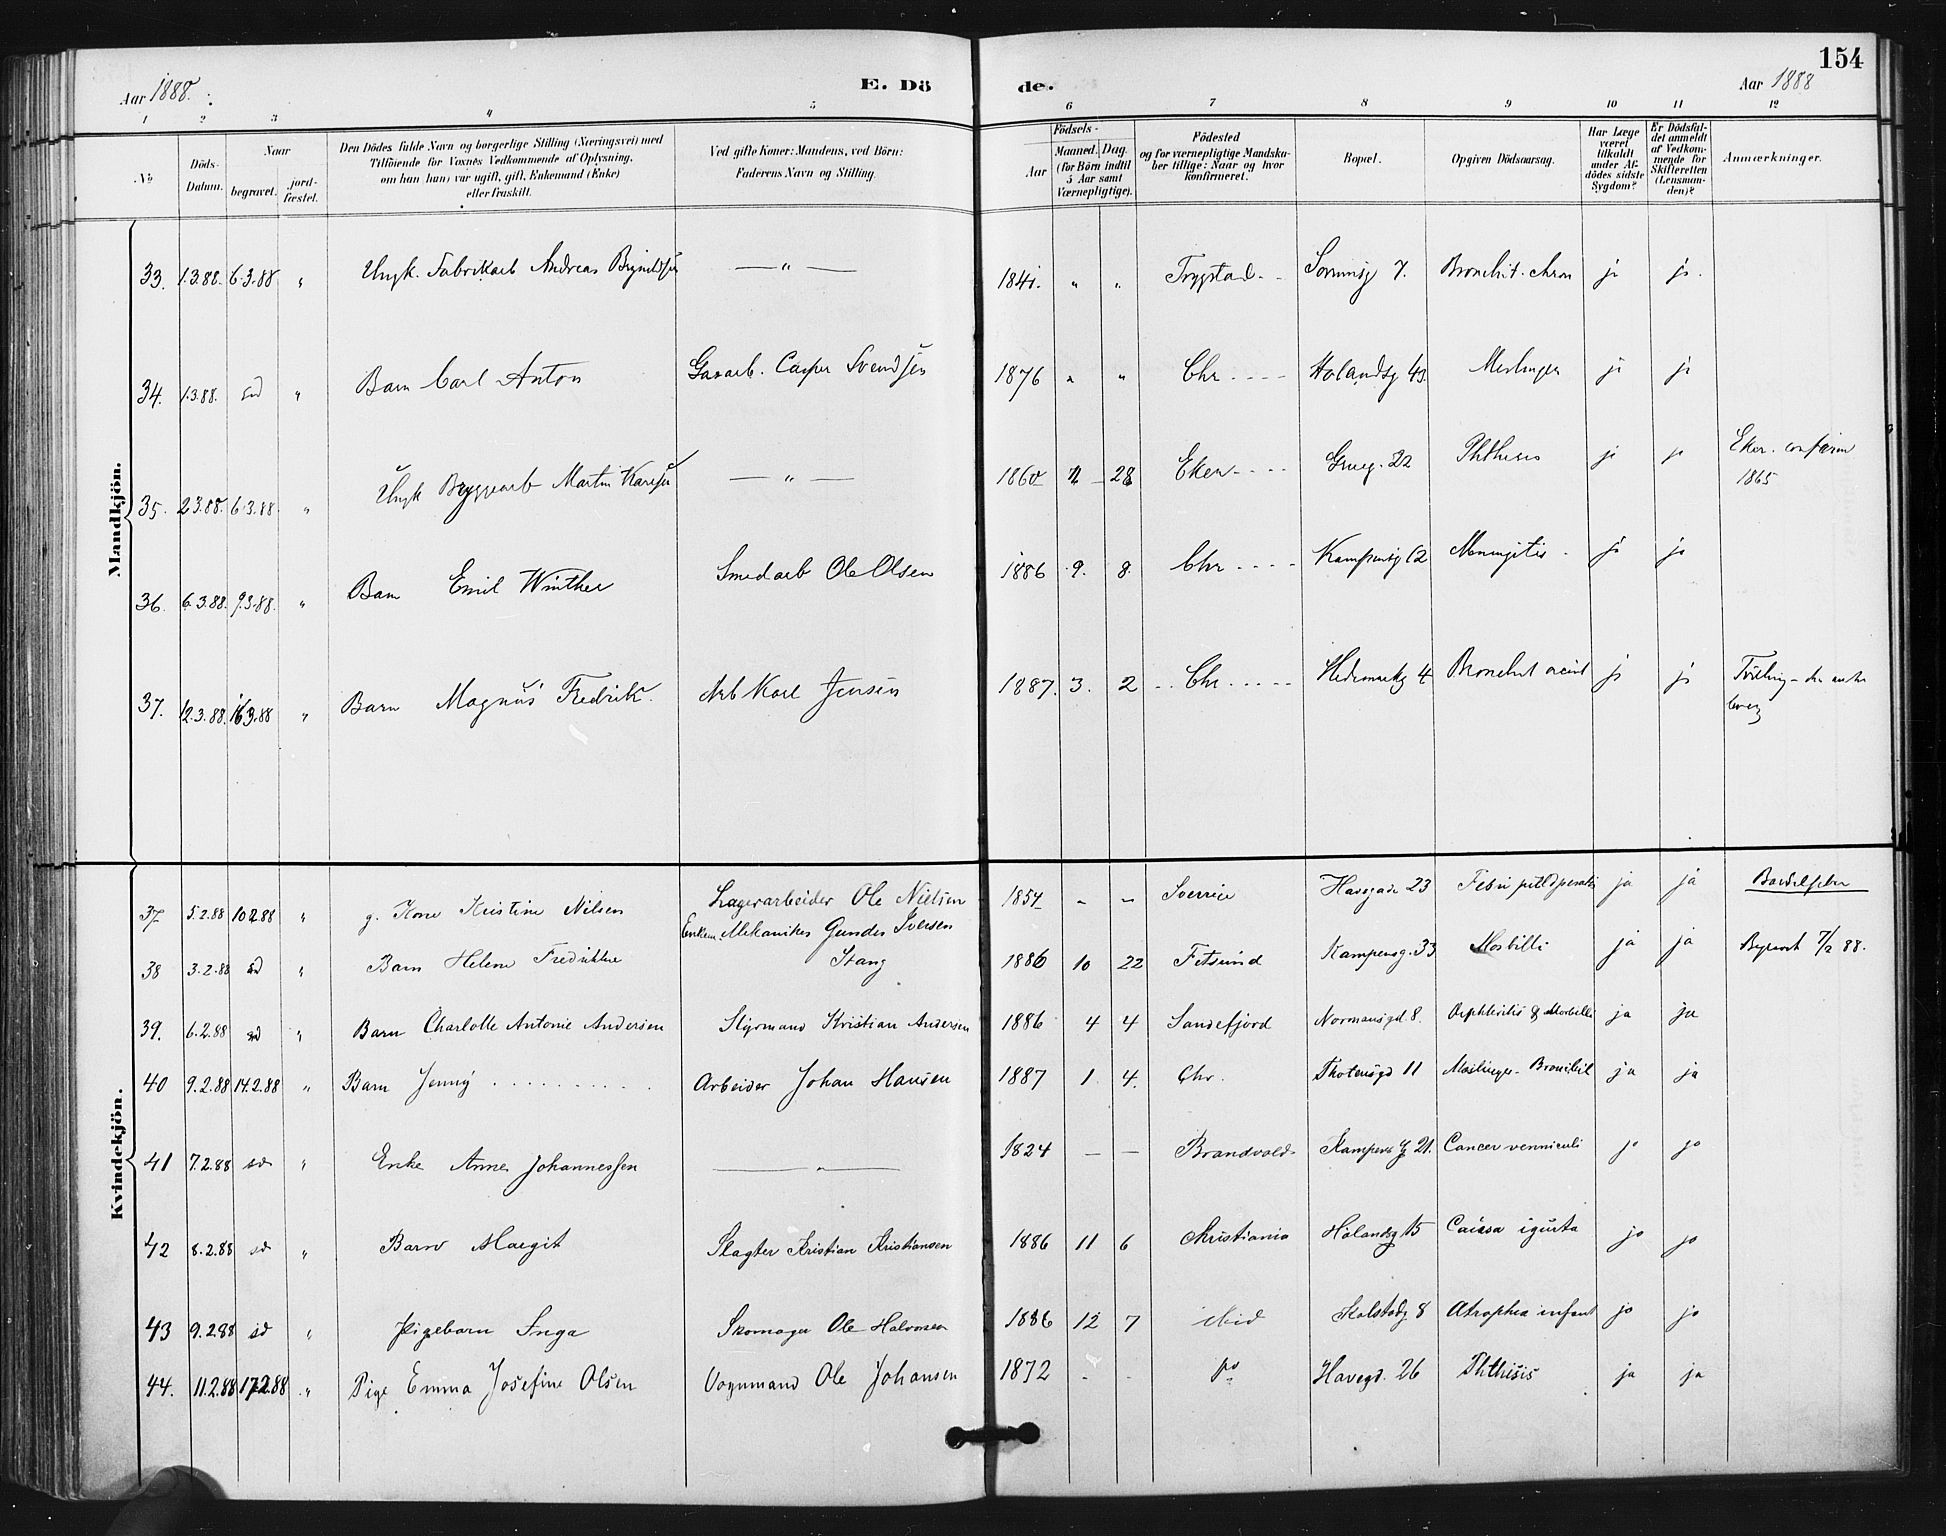 154
Aar 1888.
E. Dö de.
Aar 1888
1 2 3 4 5 6 7 8 9 10 11 12
No
Döds-Datum.
Naar
begravet.
jord-fæstet.
Den Dödes fulde Navn og borgerlige Stilling (Næringsvei) med
Tilföiende for Voxnes Vedkommende af Oplysning,
om han (hun) var ugift, gift, Enkemand (Enke)
eller fraskilt.
Ved gifte Koner: Mandens, ved Börn:
Faderens Navn og Stilling.
Födsels-
Aar
Maaned. Dag.
(for Börn indtil 5 Aar samt Værnepligtige).
Födested
og for værnepligtige Mandskaber tillige: Naar og hvor konfirmeret.
Bopæl.
Opgiven Dödsaarsag.
Har Læge været tilkaldt under Afdödes sidste Sygdom?
Er Dödsfaldet anmeldt af Vedkommende for Skifteretten (Lensmanden)?
Anmærkninger.
Mandkjön.
33. 1.3.88. 6.3.88 " Ungk. Fabrikarb Andreas — " — 1841. " " Trygstad 7. Bronchit. chron ja ja.
34. 1.3.88. sd " Barn Carl Anton Gasarb. Casper Svendsen 1876 " " Chr Holandsg 43 Meslinger ja ja
35. 2.3.88. 6.3.88 " Ungk Bryggearb Martin — " — 1860 28 Eker 22 Phthisis ja ja Eker. confirm
1865
36. 6.3.88. 9.3.88. " Barn Emil Winther Smedarb Ole Olsen 1886 9. 8. Chr Kampensg 12 Meningitis ja ja
37. 12.3.88. 16.3.88 " Barn Magnus Fredrik. Arb Karl Jensen 1887. 3. 2 Chr Hedemarkg 4 Bronchit ja ja Tvilling – den anden
Kvindekjön.
37 5.2.88 10.2.88 " g. Kone Kristine Nilsen Lagerarbeider Ole Nielsen 1857 " " Sverrie Havgade 23 Febr ja ja Barselfeber
38 3.2.88 sd " Barn Helene Fredrikke Enkem. Mekaniker Gunder Iversen
Stang 1886 10 22 Fetsund Kampensg. 33 Morbilli ja ja 7/2 88.
39. 6.2.88 sd " Barn Charlotte Antonie Andersen Styrmand Kristian Andersen 1886 4 4 Sandefjord Normansgd 8. & Morbilli ja ja
40 9.2.88 14.2.88 " Barn Jenny Arbeider Johan Hansen 1887 1 4. Chr. Thotensgd 11 Meslinger - Bronchit ja ja
41 7.2.88 sd " Enke Anne Johannessen — " — 1824 — — Brandvold Kampens g 21. Cancer ventriculi ja ja
42 8.2.88 sd " Barn Margit Slagter Kristian Kristiansen 1886 11 6 Kristiania Holandsg 15 Caussa ignota ja ja
43 9.2.88 sd " Pigebarn Inga Skomager Ole Halvorsen 1886 12 7 ibid 8 Atrophia infant ja ja
44. 11.2.88 17.2.88 " Pige Emma Josefine Olsen Vognmand Ole Johansen 1872 - - Havegd. 26 Phthisis ja ja